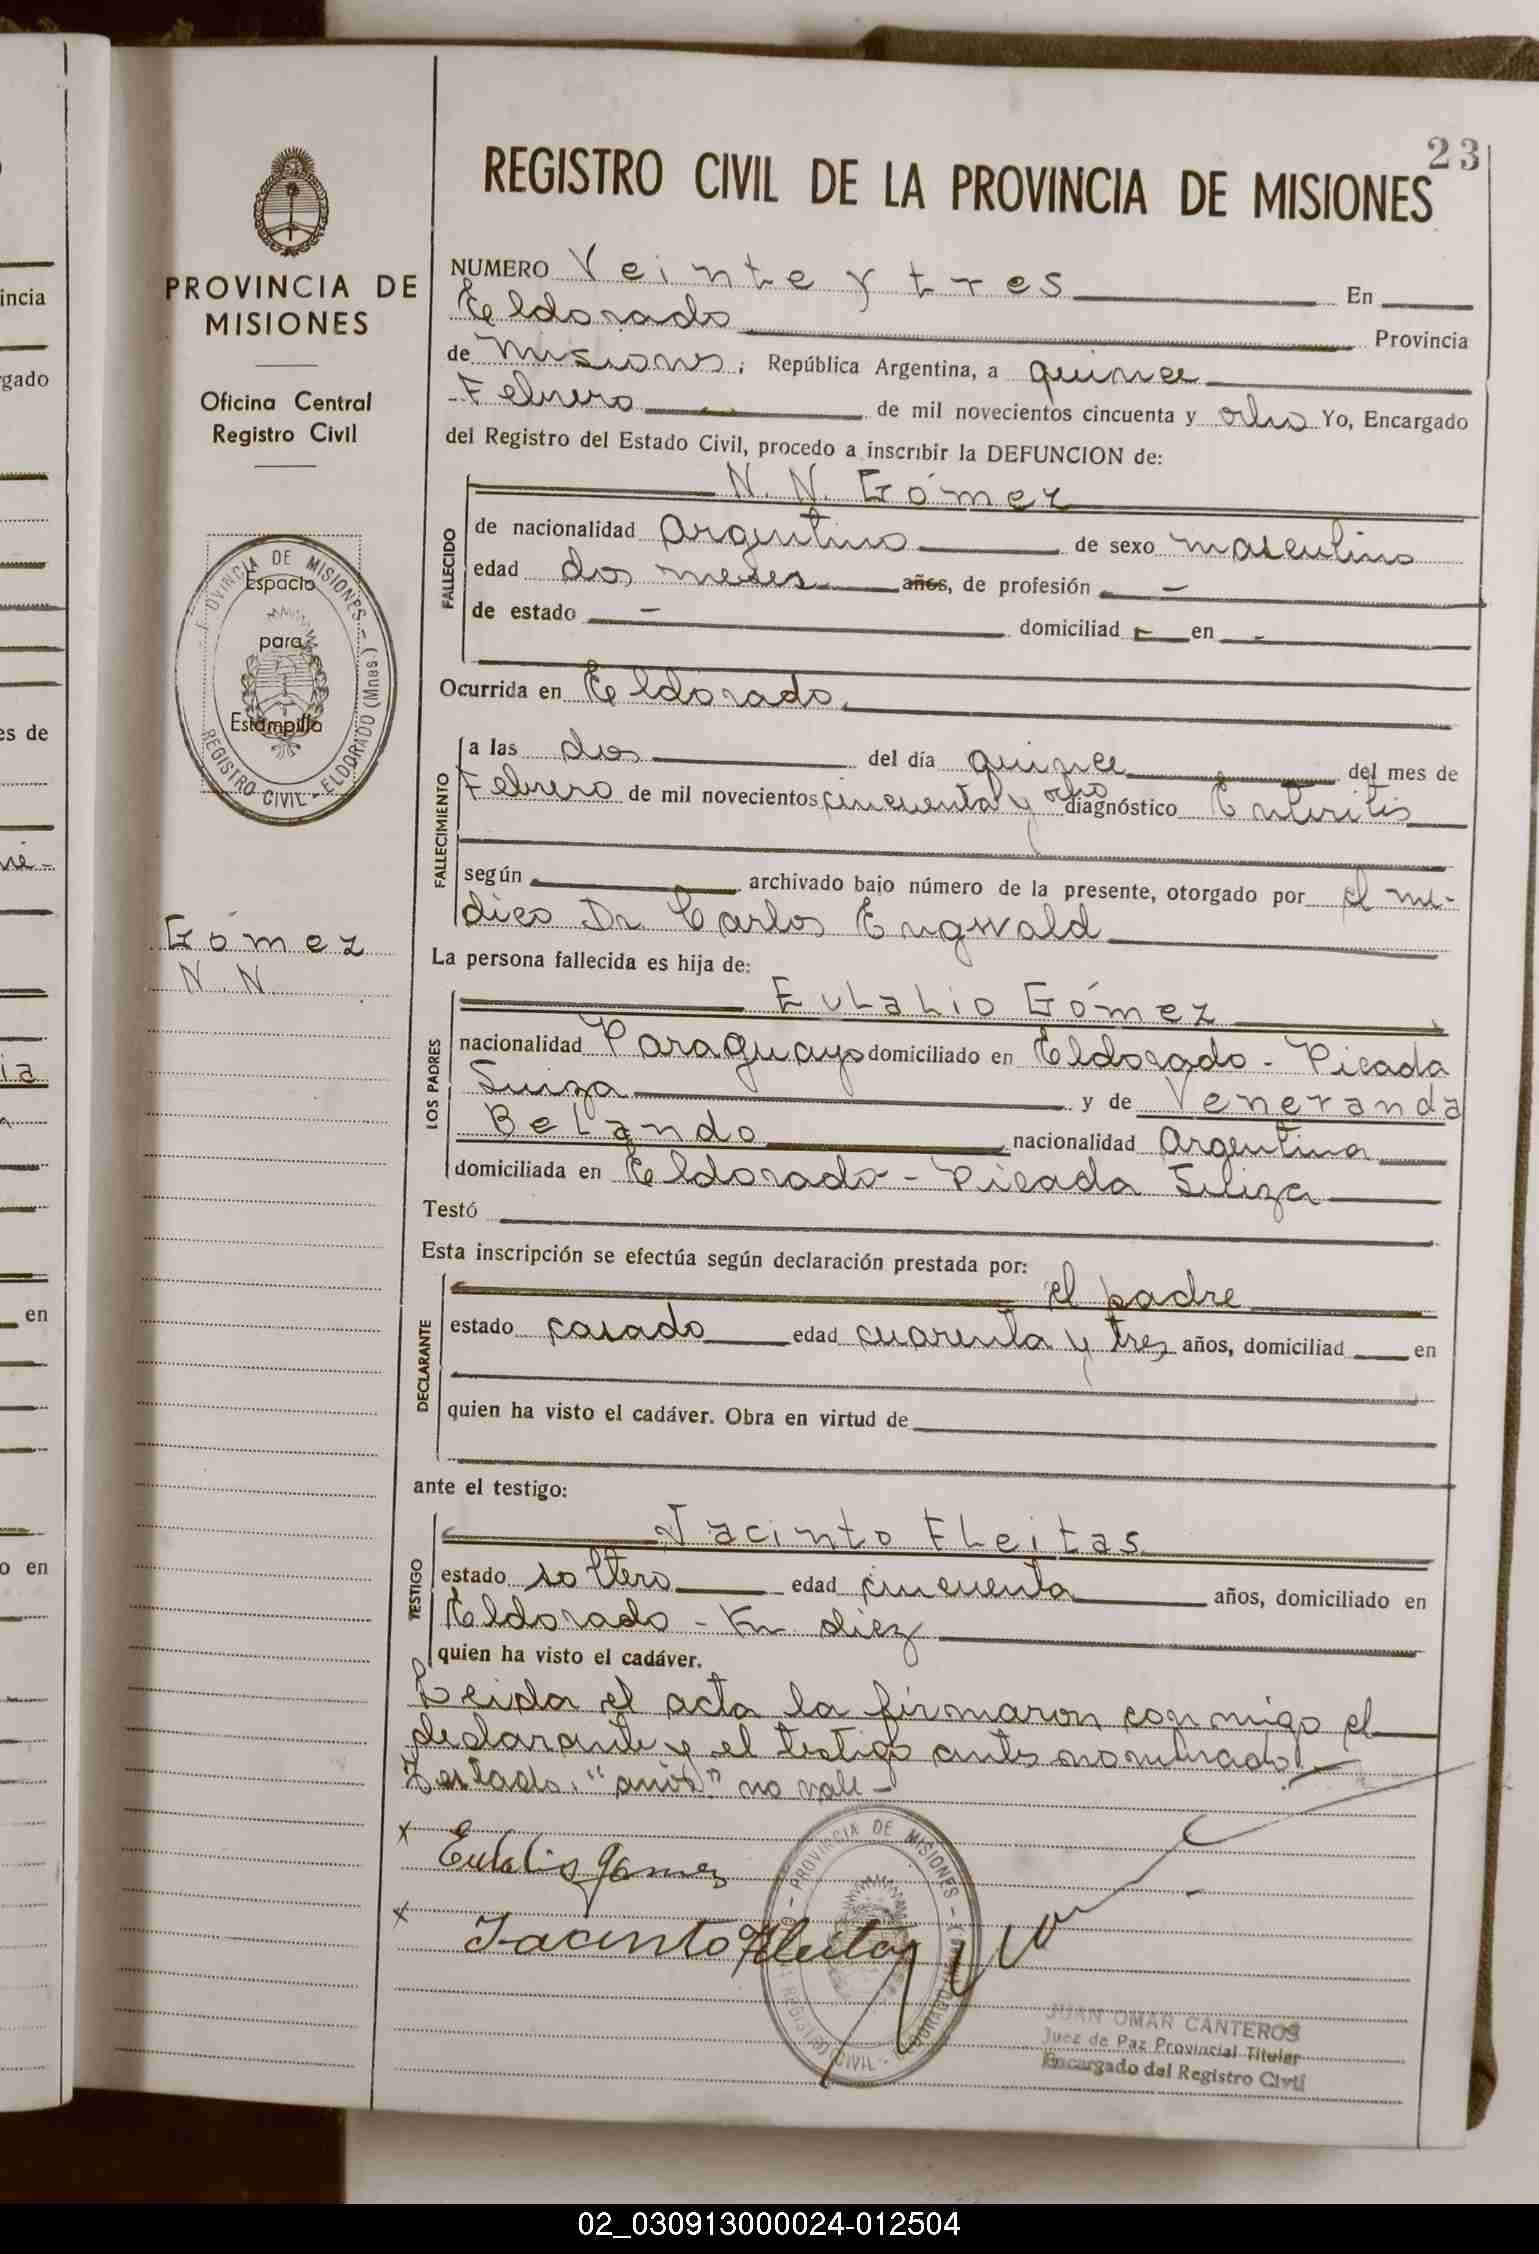 23
REGISTRO CIVIL DE LA PROVINCIA DE MISIONES
PROVINCIA DE
MISIONES
Oficina Central
Registro Civil
PROVINCIA DE MISIONES -
REGISTRO CIVIL - ELDORADO (Mnes.)
Espacio
para
Estampilla
Gómez
N. N.
NUMERO Veinte y tres En
Eldorado Provincia
de Misiones; República Argentina, a quince
Febrero de mil novecientos cincuenta y ocho Yo, Encargado
del Registro del Estado Civil, procedo a inscribir la DEFUNCION de:
FALLECIDO
N. N. Gómez
de nacionalidad Argentino de sexo masculino
edad dos meses años, de profesión -
de estado - domiciliad - en -
Ocurrida en Eldorado
FALLECIMIENTO
a las dos del día quince del mes de
Febrero de mil novecientos cincuenta y ocho diagnóstico Enteritis
según archivado bajo número de la presente, otorgado por el mé-
dico Dr. Carlos Engwald
La persona fallecida es hija de:
LOS PADRES
Eulalio Gómez
nacionalidad Paraguayo domiciliado en Eldorado - Picada
Suiza y de Veneranda
Belando nacionalidad Argentina
domiciliada en Eldorado - Picada Suiza
Testó
Esta inscripción se efectúa según declaración prestada por:
DECLARANTE
el padre
estado casado edad cuarenta y tres años, domiciliad en
quien ha visto el cadáver. Obra en virtud de
ante el testigo:
TESTIGO
Jacinto Fleitas
estado soltero edad cincuenta años, domiciliado en
Eldorado - Km diez
quien ha visto el cadáver.
Leida el acta la firmaron conmigo el
declarante y el testigo antes nombrado. -
Testado: "años" no vale -
x Eulalio Gómez
x Jacinto Fleitas
PROVINCIA DE MISIONES -
REGISTRO CIVIL - ELDORADO
JUAN OMAR CANTEROS
Juez de Paz Provincial Titular
Encargado del Registro Civil
incia
gado
es de
en
o en
02_030913000024-012504